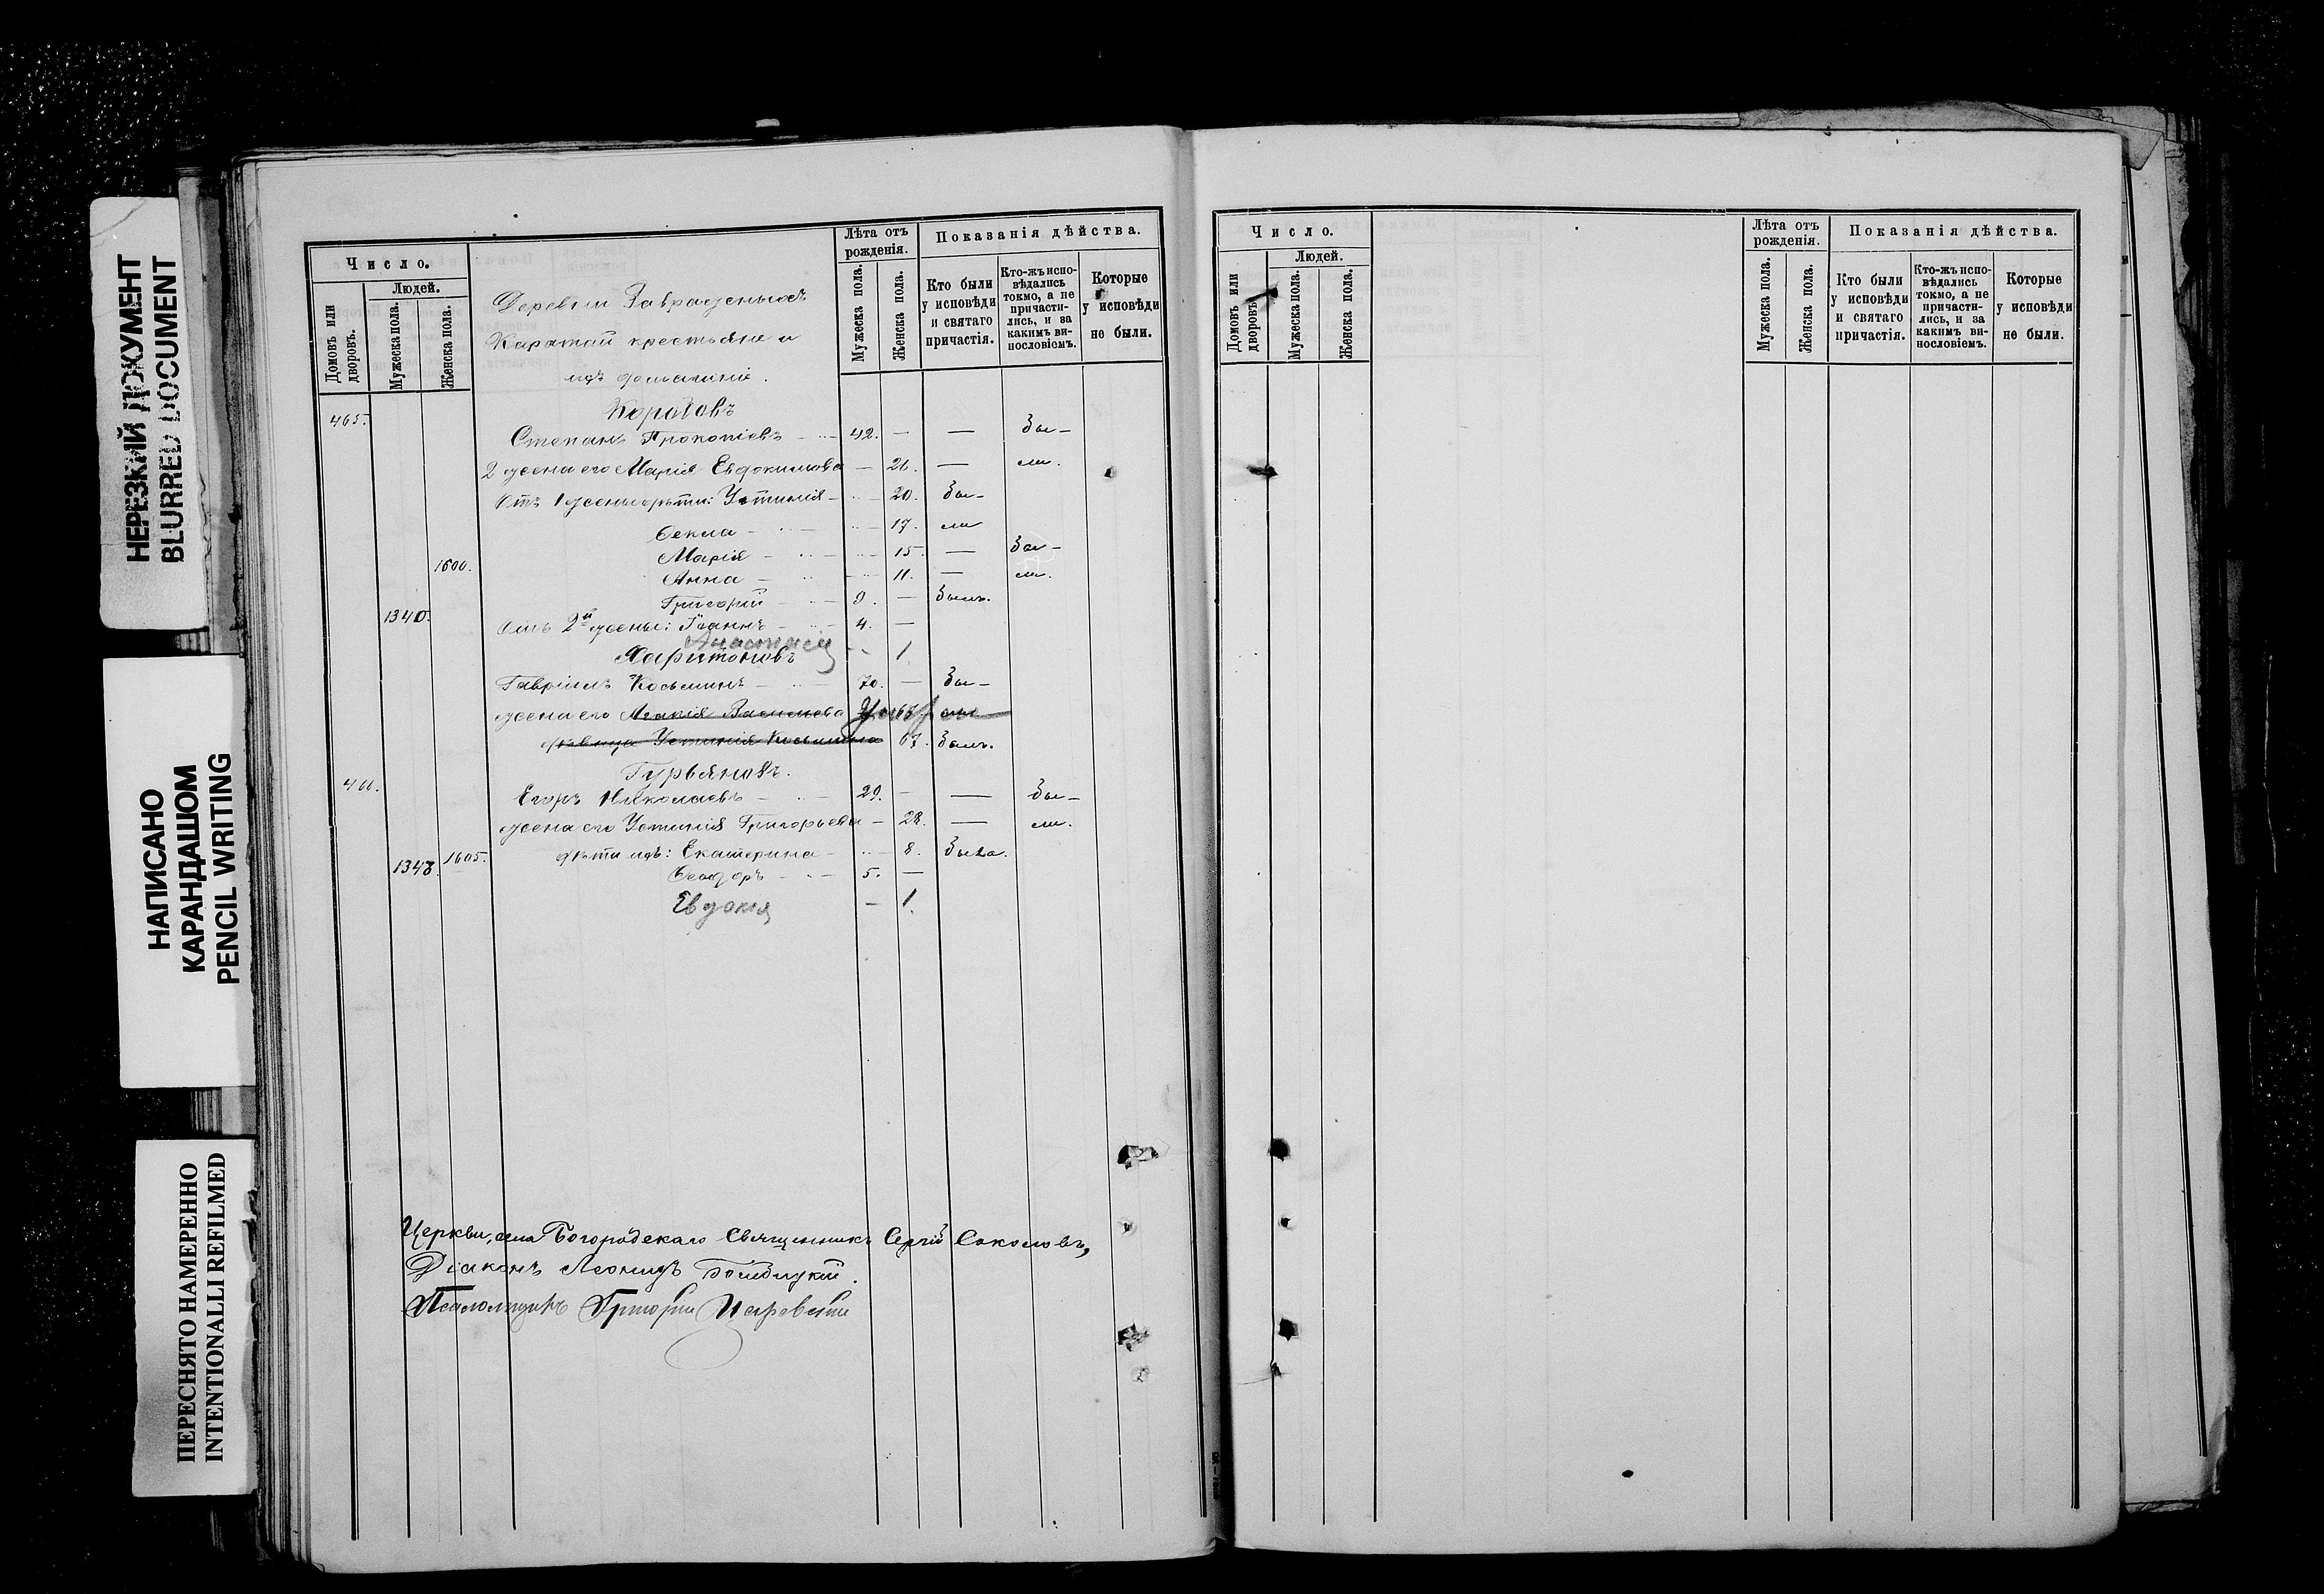 НЕРЕЗКИЙ ДОКУМЕНТ
BLURRED DOCUMENT
НАПИСАНО
КАРАНДАШОМ
PENCIL WRITING
ПЕРЕСНЯТО НАМЕРЕННО
INTENTIONALLI REFILMED
Число.
Людей.
Домовъ или дворовъ.
Мужеска пола.
Женска пола.
Деревни
Каратай крестьяне и
ихъ домашніе.
Лѣта отъ рожденія.
Мужеска пола.
Женска пола.
Показанія дѣйства.
Кто были у исповѣди и святаго причастія.
Кто-жъ исповѣдались токмо, а не причастились, и за какимъ винословіемъ.
Которые у исповѣди не были.
465. Коротовъ
Степанъ Прокопіевъ 42. — — Бы-
2 жена его Марія Евдокимова — 26. — ли.
Отъ 1 жены дѣти: Устинія 20. Бы-
Ѳекла 17. ли
Марія 15. — Бы-
1600. Анна 11. — ли.
Григорій 9. — Былъ.
1340. Отъ 2й жены: Іоаннъ 4. —
Анастасія 1
Харитоновъ
Гавріилъ Косьминъ 70. — Бы-
жена его Васильева
дѣвица Устинія Косьмина 67. Была.
Гурьяновъ.
Егоръ Николаевъ 29. — — Бы-
жена его Устинія Григорьева — 28. — ли.
1605. дѣти ихъ: Екатерина 8. Была.
1343. Ѳеодоръ 5. —
Евдокія — 1.
Церкви, села Богородскаго Священникъ Сергій Соколовъ,
Діаконъ Леонидъ
Псаломщикъ Григорій
Число.
Людей.
Домовъ или дворовъ.
Мужеска пола.
Женска пола.
Лѣта отъ рожденія.
Мужеска пола.
Женска пола.
Показанія дѣйства.
Кто были у исповѣди и святаго причастія.
Кто-жъ исповѣдались токмо, а не причастились, и за какимъ винословіемъ.
Которые у исповѣди не были.